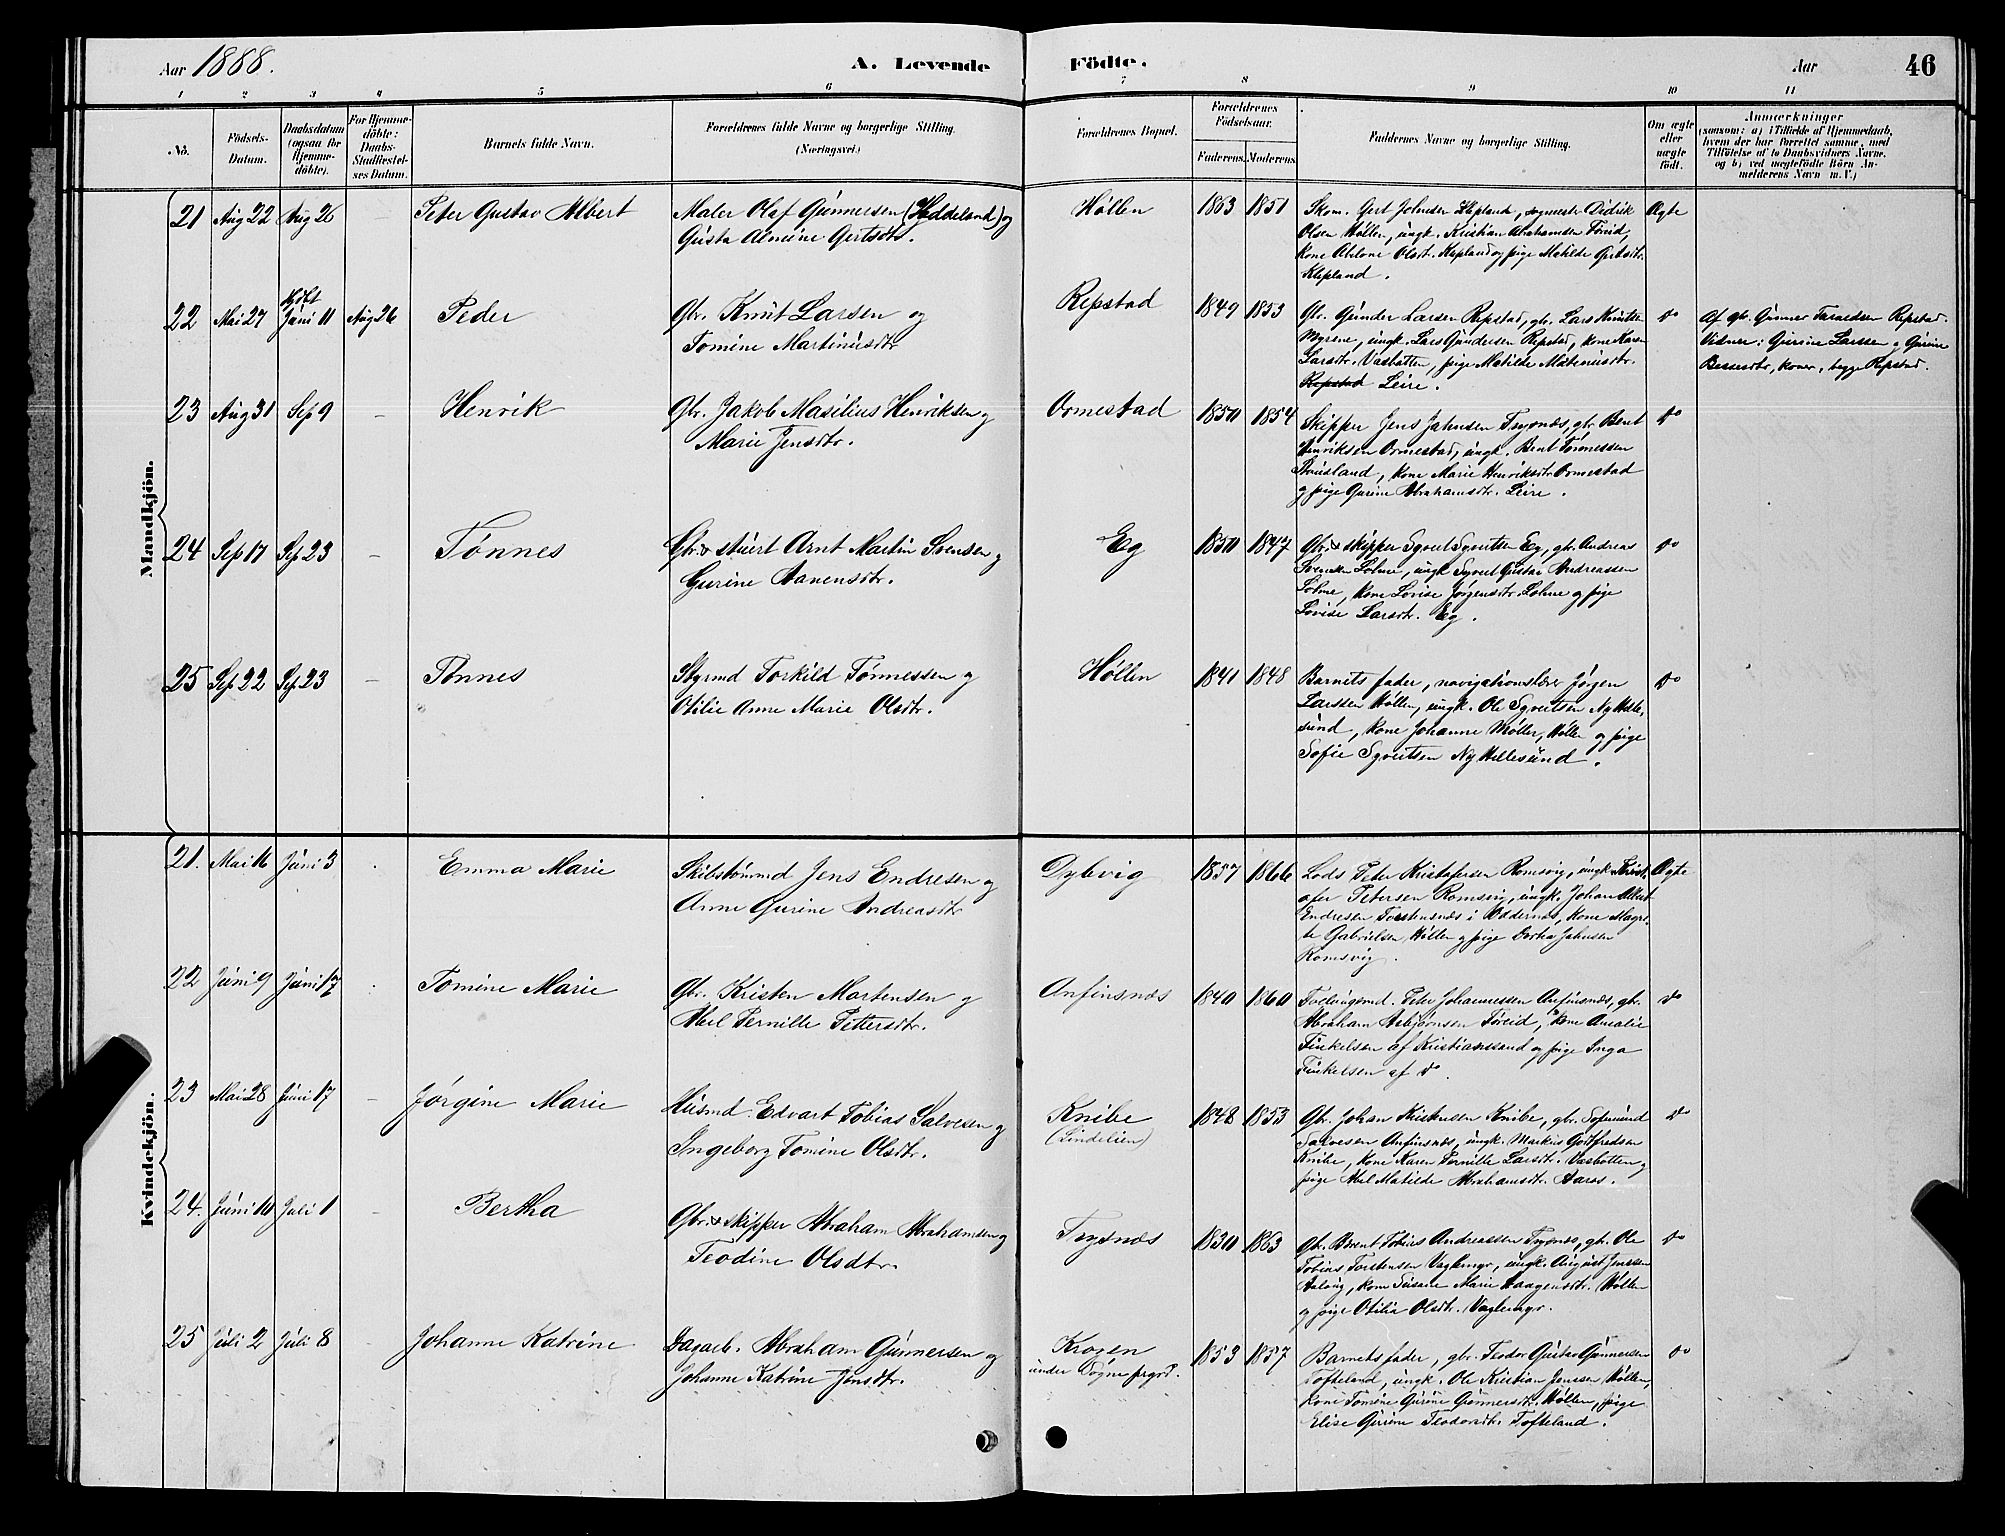 Aar 1888.
A. Levende Födte.
Aar
46
1 2 3 4 5 6 7 8 9 10 11
No.
Födsels-Datum.
Daabsdatum (ogsaa for Hjemme-döbte).
For Hjemme-döbte: Daabs-Stadfæstel-ses Datum.
Barnets fulde Navn.
Forældrenes fulde Navne og borgerlige Stilling.
(Næringsvei.)
Forældrenes Bopæl.
Forældrenes Födselsaar.
Faderens. Moderens.
Faddernes Navne og borgerlige Stilling.
Om ægte eller uægte födt.
Anmærkninger
(saasom: a) i Tilfælde af Hjemmedaab,
hvem der har forrettet samme, med
Tilföielse af to Daabsvidners Navne,
og b) ved uægtefödte Börn An-
melderens Navn m. V.)
Mandkjön.
21 Aug 22 Aug 26 – Peter Gustav Albert
Maler Olaf Gunnersen (Heddeland) og
Gusta Almine Gertsdtr.
Høllen 1863 1851
Skom. Gert Johnsen Klepland, sogneste Didrik
Olsen Høllen, ungk. Kristian Abrahamsen Føreid,
kone Abelone Olsdt. Klepland og pige Matilde Gertsdtr.
Klepland.
Ægte
22 Mai 27 Hjdbt Juni 11 Aug 26 Peder
Gbr. Knut Larsen og
Tomine Martinusdtr
Repstad 1849 1853
Gbr. Gunder Larsen Repstad, gb. Lars Knutsen
Myrene, ungk. Lars Gundersen Repstad, kone Karen
Larsdtr. Vasbotten, pige Matilde Martinusdtr.
Repstad Leire.
do
Af gb. Gunner Taraldsen Repstad.
Vidner: Gurine Larssen og Gurine
Berntsdtr, koner, begge Repstad.
23 Aug 31 Sep 9 – Henrik
Gbr. Jakob Masilius Henriksen og
Marie Jensdtr.
Ormestad 1850 1854
Skipper Jens Jahnsen Trysnæs, gbr. Bent
Henriksen Ormestad, ungk. Bent Tønnessen
Stausland, kone Marie Henriksdtr. Ormestad
og pige Gurine Abrahamsdt. Leire.
do
24 Sep 17 Sep 23 – Tønnes
Gbr. & stuert Arnt Martin Svensen og
Gurine Aanensdtr.
Eg 1850 1847
Gbr. & skipper Syvert Syvertsen Eg, gbr. Andreas
Svensen Lohne, ungk Syvert Gustav Andreassen
Lohne, kone Lovise Jørgensdtr. Lohne og pige
Lovise Larsdt. Eg.
do
25 Sep 22 Sep 23 – Tønnes
Styrmd Torkild Tønnessen og
Otilie Anne Marie Olsdtr.
Høllen 1841 1848
Barnets fader, navigationslærer Jørgen
Larssen Høllen, ungk. Ole Syvertsen Ny Helle-
sund, kone Johanne Møller, Høllen og pige
Sofie Syvertsen Ny Hellesund.
do
Kvindekjön.
21. Mai 16 Juni 3 Emma Marie
Skibstømmd Jens Endresen og
Anne Gurine Andreasdtr
Dybvig 1857 1866
Lods Peter Kristofersen Romsvig, ungk Krist-
ofer Petersen Romsvig, ungk. Johan Albert
Endresen Torstensnæs i Oddernæs, kone Magre-
te Gabrielsen Høllen og pige Dortea Jahnsen
Romsvig.
Ægte
22 Juni 9 Juni 17 Tomine Marie
Gbr. Kristen Mortensen og
Abel Pernille Pettersdtr.
Anfinsnæs 1840 1860
Føderaadsmd. Peter Johannessen Anfinsnæs, gbr.
Abraham Asbjørnsen Føreid, kone Amalie
Finkelsen af Kristianssand og pige Inga
Finkelsen af do.
do
23 Mai 28 Juni 17 – Jørgine Marie
Husmd. Edvart Tobias Salvesen og
Ingeborg Tomine Olsdtr.
Knibe
(Lindelien)
1848 1853
Gbr. Johan Kristensen Knibe, gbr. Sofimund
Salvesen Anfinsnæs, ungk. Markus Godtfredsen
Knibe, kone Karen Pernille Larsdt. Vasbotten og
pige Abel Matilde Abrahamsdt. Aaros.
do
24. Juni 10 Juli 1 Bertha
Gbr & skipper Abraham Abrahamsen og
Teodine Olsdtr.
Trysnæs 1830 1863
Gbr. Bernt Tobias Andreassen Trysnæs, gb. Ole
Tobias Torstensen Vaglemyr, ungk. August Jenssen
Aalvig, kone Susane Marie Haagensdtr. Høllen
og pige Otilia Olsdt. Vaglemyr.
do
25 Juli 2 Juli 8 Johanne Katrine
Dagarb. Abraham Gunnersen og
Johanne Katrine Jensdtr.
Krogen
under Søgne prgrd.
1853 1857
Barnets fader, gbr. Teodor Gustav Gunnersen
Tofteland, ungk. Ole Kristian Jenssen Høllen,
kone Tomine Gurine Gunnersdt. Høllen, pige
Elise Gurine Teodorsdt. Tofteland.
do